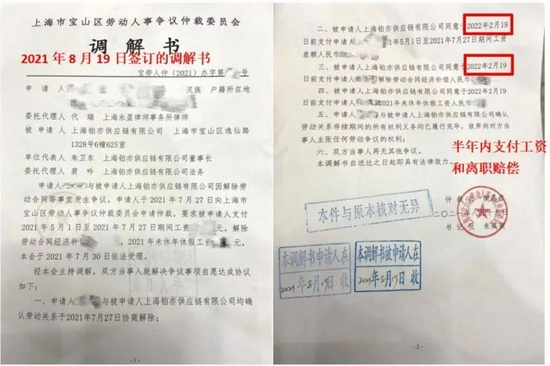 上海市宝山区劳动人事争议仲裁委员会
调解书
2021年8月19日签订的调解书
宝劳人仲(2021)办字第 号
申请人 汉族 户籍所在地
委托代理人 代瑞 上海永盈律师事务所律师
被申请人 上海铂亦供应链有限公司 上海市宝山区逸仙路
1328号6幢625室
单位代表人 朱卫东 上海铂亦供应链有限公司董事长
委托代理人 裴吟 上海铂亦供应链有限公司法务
申请人 与被申请人上海铂亦供应链有限公司因解除劳
动合同等事宜发生争议。申请人 于2021年7月27日向上海
市宝山区劳动人事争议仲裁委员会申请仲裁,要求被申请人支付
2021年5月1日至2021年7月27日期间工资 元,解除
劳动合同经济补 元,2021年未休年休假工资 元。
本会于2021年7月30日依法受理。
经本会主持调解,双方当事人就解决争议事项自愿达成协议
如下:
一、申请人 与被申请人上海铂亦供应链有限公司均确
认劳动关系于2021年7月27日协商解除;
- 1 -
二、被申请人上海铂亦供应链有限公司同意于2022年2月19
日前支付申请 5月1日至2021年7月27日期间工资
差额人民币
三、被申请人上海铂亦供应链有限公司同意于2022年2月19
日前支付申请人 解除劳动合同经济补偿人民币
上海铂亦供应链有限公司同意于2022年2月19
日前支付 2021年未休年休假工资人民币
与被申请人上海铂亦供应链有限公司确认
劳动关系存续期间的所有权利义务均已履行完毕,放弃向对方当
事人主张任何劳动争议的权利;
六、双方当事人再无其他争议。
本调解书自送达之日起即具有法律效力。
半年内支付工资
和离职赔偿
仲裁
本件与原本核对无异
书记员
本调解书申请人在
2021年8月19日 收
本调解书被申请人在
2021年8月19日 收
- 2 -